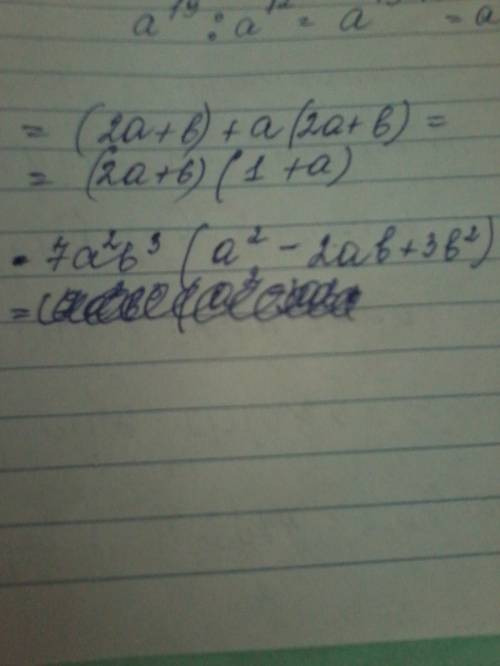 a¹⁹ : a¹² = a = a
= (2a+b) + a(2a+b) =
= (2a+b)(1+a)
• 7a²b³ (a² - 2ab + 3b²)
=